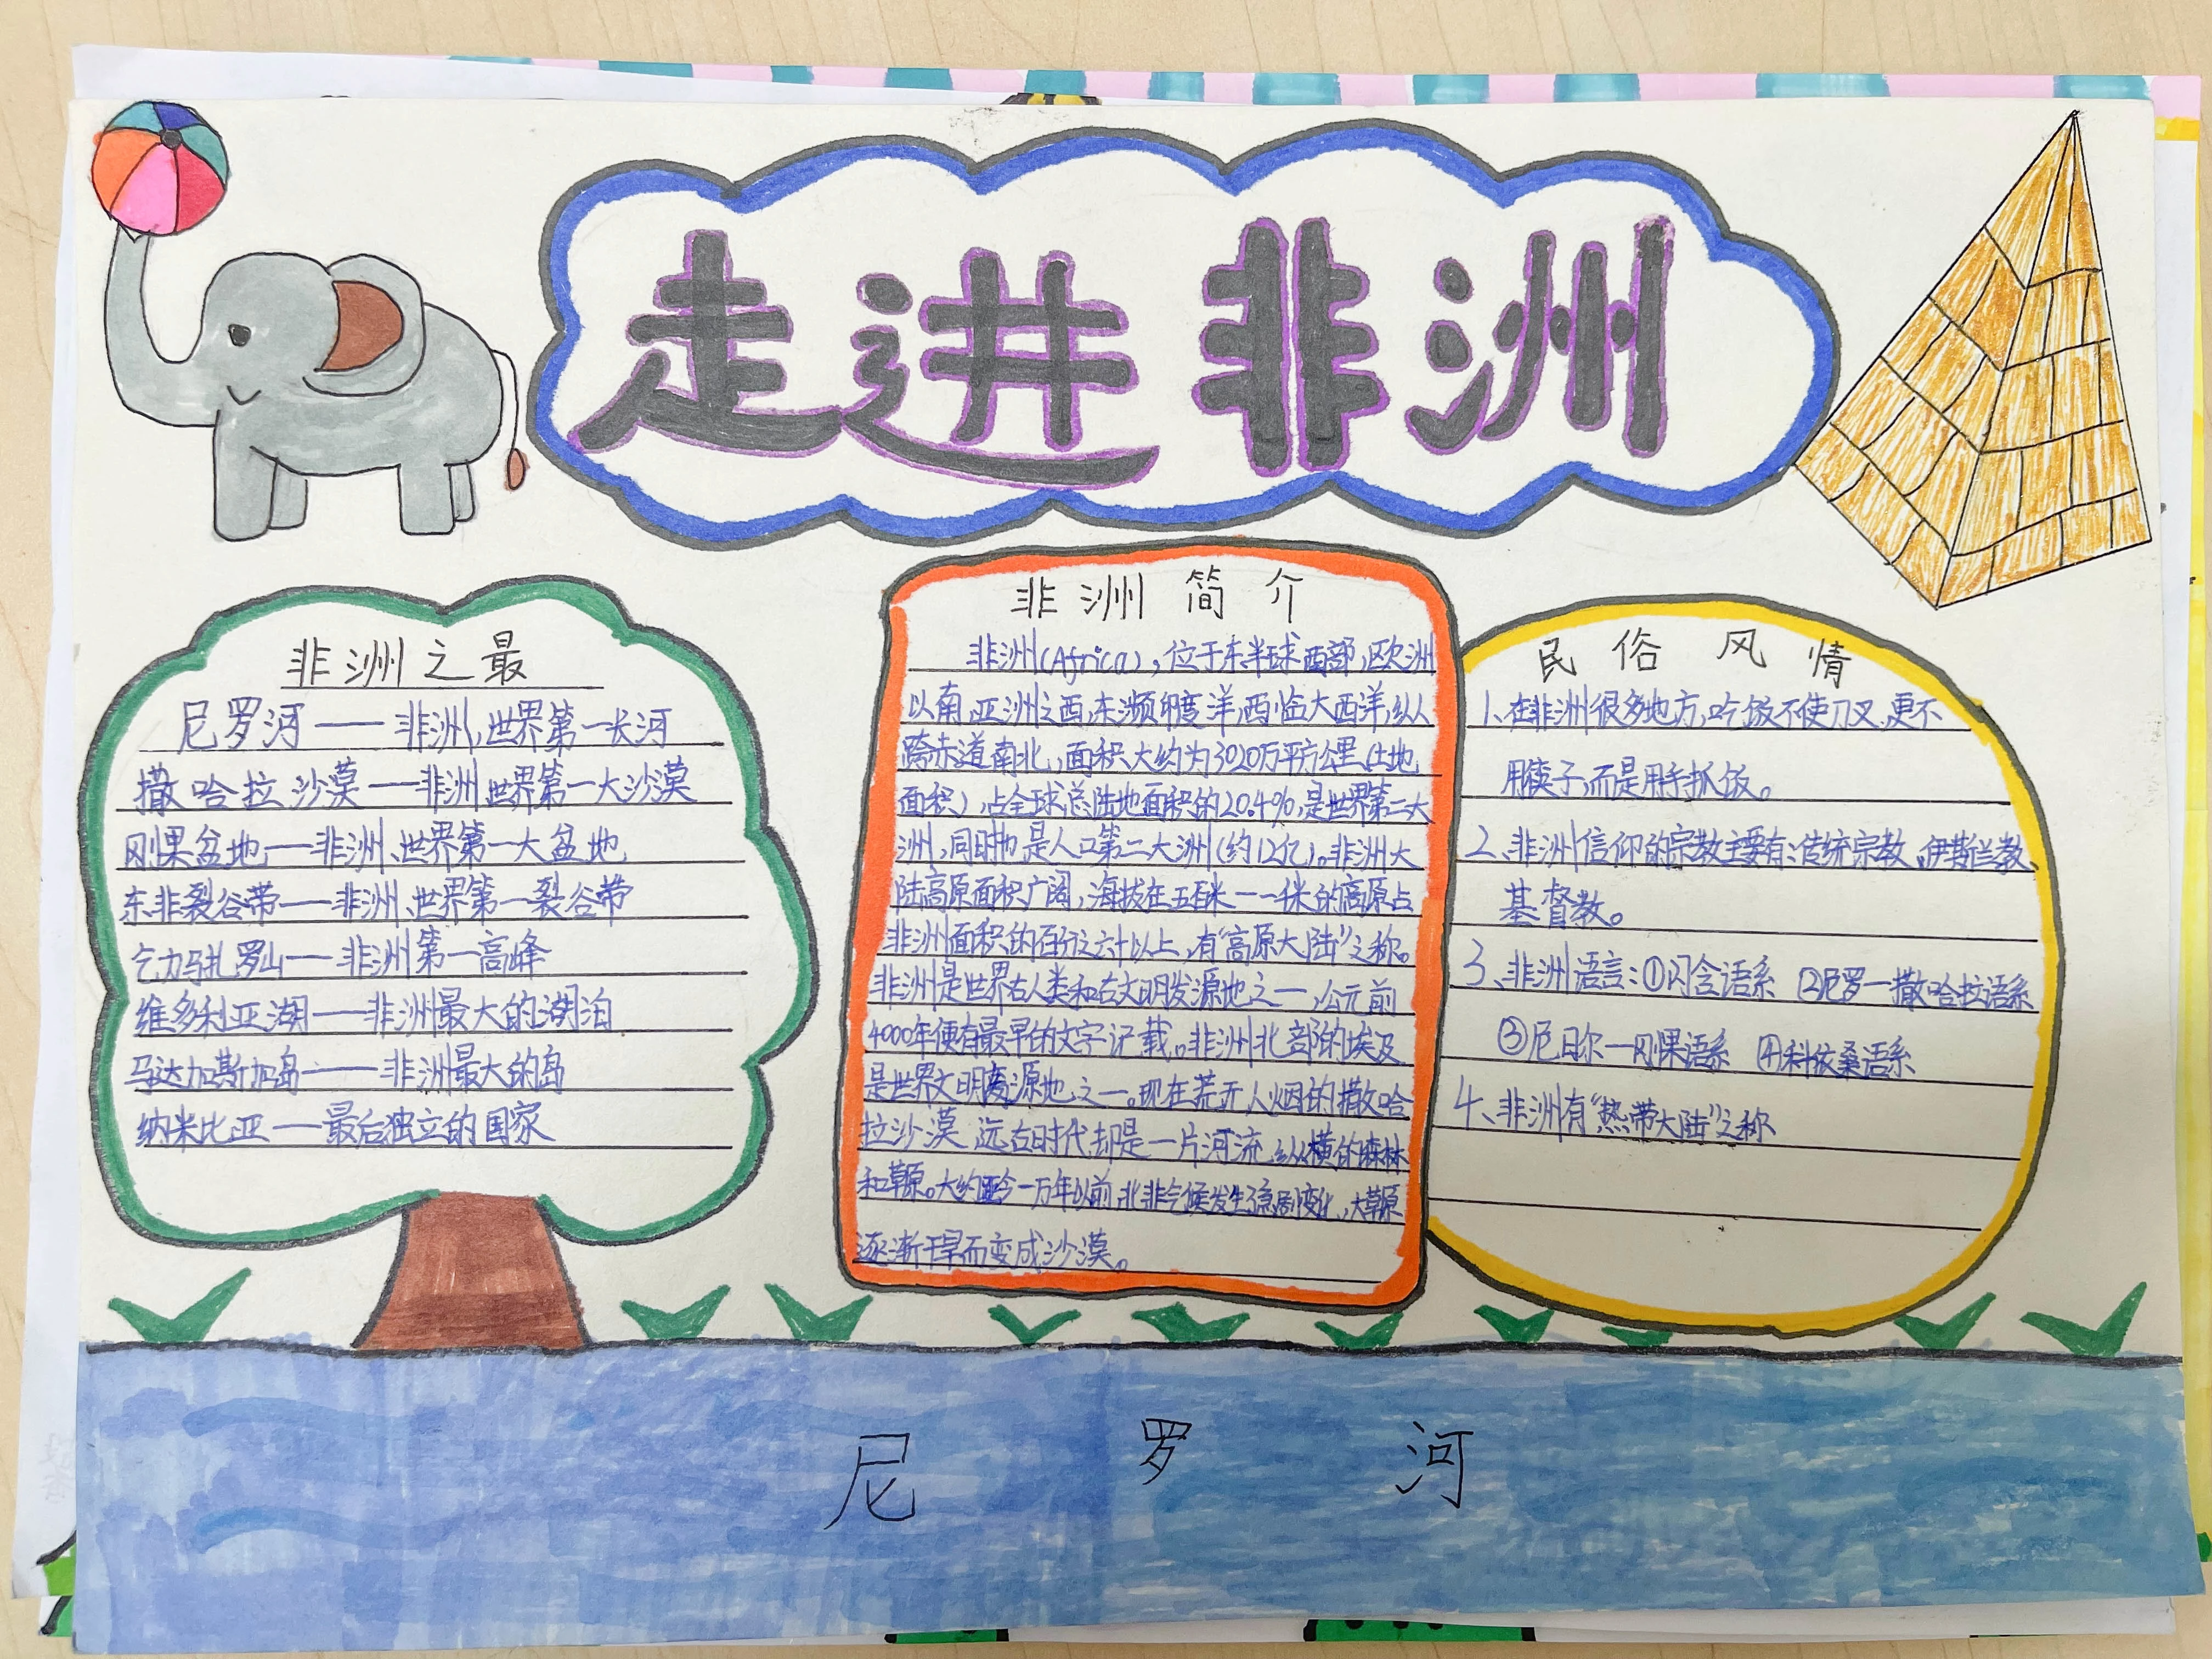 走进非洲
非洲之最
尼罗河——非洲,世界第一长河
撒哈拉沙漠——非洲、世界第一大沙漠
刚果盆地——非洲、世界第一大盆地
东非裂谷带——非洲、世界第一裂谷带
乞力马扎罗山——非洲第一高峰
维多利亚湖——非洲最大的湖泊
马达加斯加岛——非洲最大的岛
纳米比亚——最后独立的国家
非洲简介
非洲(Africa),位于东半球西部,欧洲
以南,亚洲之西,东濒印度洋,西临大西洋,纵
跨赤道南北,面积大约为3020万平方公里(土地
面积),占全球总陆地面积的20.4%,是世界第二大
洲,同时也是人口第二大洲(约12亿)。非洲大
陆高原面积广阔,海拔在五百米——千米的高原占
非洲面积的百分之六十以上,有“高原大陆”之称。
非洲是世界古人类和古文明发源地之一,公元前
4000年便有最早的文字记载。非洲北部的埃及
是世界文明发源地之一。现在荒无人烟的撒哈
拉沙漠 远古时代却是一片河流纵横的森林
和草原。大约距今一万年以前,北非气候发生急剧变化,大草原
逐渐干旱而变成沙漠。
民俗风情
1、在非洲很多地方,吃饭不使刀叉,更不
用筷子,而是用手抓饭。
2、非洲信仰的宗教主要有:传统宗教、伊斯兰教、
基督教。
3、非洲语言:①闪含语系 ②尼罗—撒哈拉语系
③尼日尔—刚果语系 ④科依桑语系
4、非洲有“热带大陆”之称
尼罗河